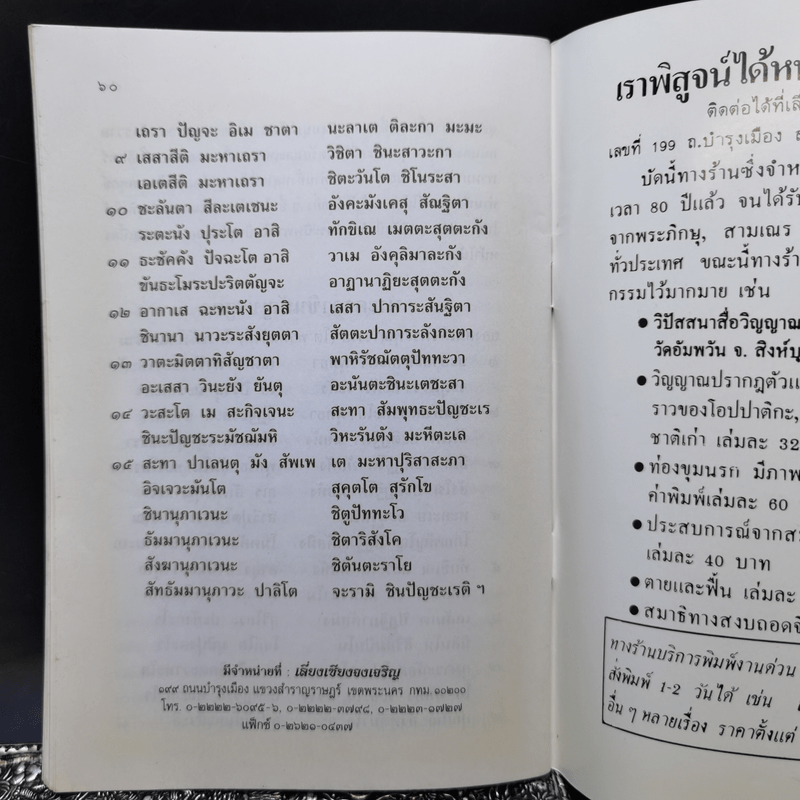 ๖๐
เถรา ปัญจะ อิเม ชาตา นะลาเต ติละกา มะมะ
๙ เสสาสีติ มะหาเถรา วิชิตา ชินะสาวะกา
เอเตสีติ มะหาเถรา ชิตะวันโต ชิโนระสา
๑๐ ชะลันตา สีละเตเชนะ อังคะมังเคสุ สัณฐิตา
ระตะนัง ปุระโต อาสิ ทักขิเณ เมตตะสุตตะกัง
๑๑ ธะชัคคัง ปัจฉะโต อาสิ วาเม อังคุลิมาละกัง
ขันธะโมระปะริตตัญจะ อาฏานาฏิยะสุตตะกัง
๑๒ อากาเส ฉะทะนัง อาสิ เสสา ปาการะสันฐิตา
ชินานา นาวะระสังยุตตา สัตตะปาการะลังกะตา
๑๓ วาตะมิตตาทิสัญชาตา พาหิรัชณัตตุปัททะวา
อะเสสา วินะยัง ยันตุ อะนันตะชินะเตชะสา
๑๔ วะสะโต เม สะกิจเจนะ สะทา สัมพุทธะปัญชะเร
ชินะปัญชะระมัชฌัมหิ วิหะรันตัง มะหีตะเล
๑๕ สะทา ปาเลนตุ มัง สัพเพ เต มะหาปุริสาสะภา
อิจเจวะมันโต สุคุตโต สุรักโข
ชินานุภาเวนะ ชิตูปัททะโว
ธัมมานุภาเวนะ ชิตาริสังโค
สังฆานุภาเวนะ ชิตันตะราโย
สัทธัมมานุภาวะ ปาลิโต จะรามิ ชินปัญชะเรติ ฯ
มีจำหน่ายที่ : เลี่ยงเซียงจงเจริญ
๑๙๙ ถนนบำรุงเมือง แขวงสำราญราษฎร์ เขตพระนคร กทม. ๑๐๒๐๐
โทร. ๐-๒๒๒๒-๖๐๙๕-๖, ๐-๒๒๒๒-๓๗๙๘, ๐-๒๒๒๓-๑๗๒๗
แฟ็กซ์ ๐-๒๖๒๑-๐๔๓๗
เราพิสูจน์ได้
ติดต่อได้ที่
เลขที่ 199 ถ.บำรุงเมือง
บัดนี้ทางร้านซึ่งจำ
เวลา 80 ปีแล้ว จนได้รับ
จากพระภิกษุ, สามเณร
ทั่วประเทศ ขณะนี้ทางร้า
กรรมไว้มากมาย เช่น
● วิปัสสนาสื่อวิญญาณ
วัดอัมพวัน จ. สิงห์บุ
● วิญญาณปรากฏตัวแ
ราวของโอปปาติกะ,
ชาติเก่า เล่มละ 32
● ท่องขุมนรก มีภาพ
ค่าพิมพ์เล่มละ 60
● ประสบการณ์จากส
เล่มละ 40 บาท
● ตายและฟื้น เล่มละ
● สมาธิทางสงบถอดจิ
ทางร้านบริการพิมพ์งานด่วน
สั่งพิมพ์ 1-2 วันได้ เช่น
อื่น ๆ หลายเรื่อง ราคาตั้งแต่